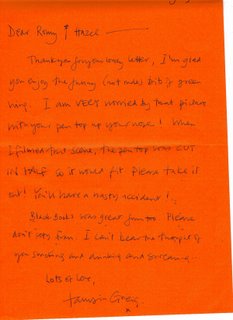 Dear Romy & Hazel
Thankyou for your lovely letter, I'm glad
you enjoy the funny (not rude) bits of green
wing. I am VERY worried by that picture
with your pen top up your nose! When
I filmed that scene, the pen top was CUT
IN HALF so it would fit. Please take it
out! You'll have a nasty accident!
Black Books was great fun too. Please
don't copy Fran. I can't bear the thought of
you smoking and drinking and swearing.
Lots of Love,
Tamsin Greig
x